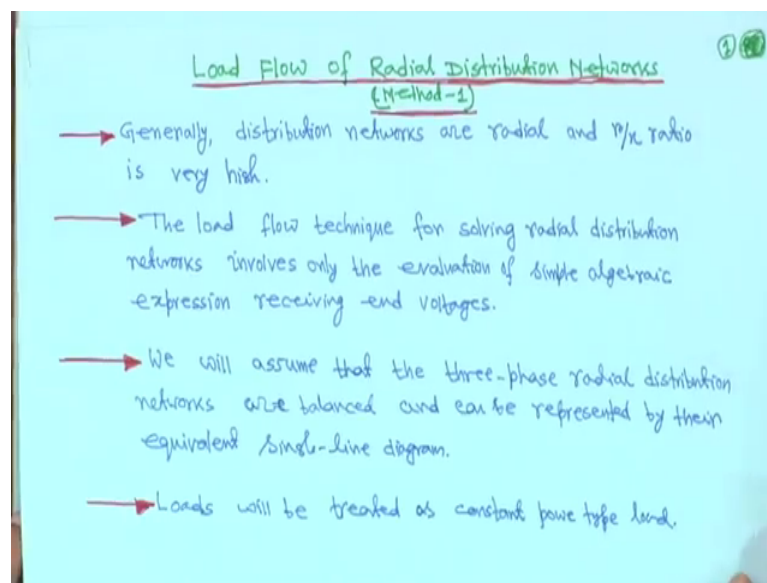 1
Load Flow of Radial Distribution Networks
(Method-1)
Generally, distribution networks are radial and r/x ratio
is very high.
The load flow technique for solving radial distribution
networks involves only the evaluation of simple algebraic
expression receiving end voltages.
We will assume that the three-phase radial distribution
networks are balanced and can be represented by their
equivalent single-line diagram.
Loads will be treated as constant powe type load.